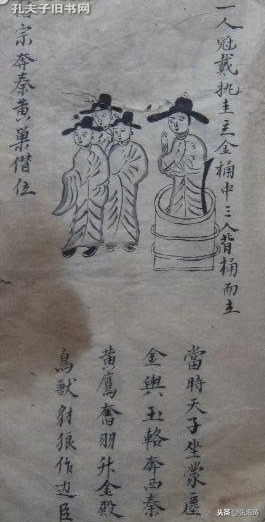 孔夫子旧书网
一人冠戴执圭立金桶中三人背桶而立
宗奔秦黄巢僭位
當時天子坐蒙塵
金輿玉輅奔西秦
黄鷹奮羽升金殿
鳥獸豺狼作边臣
头条